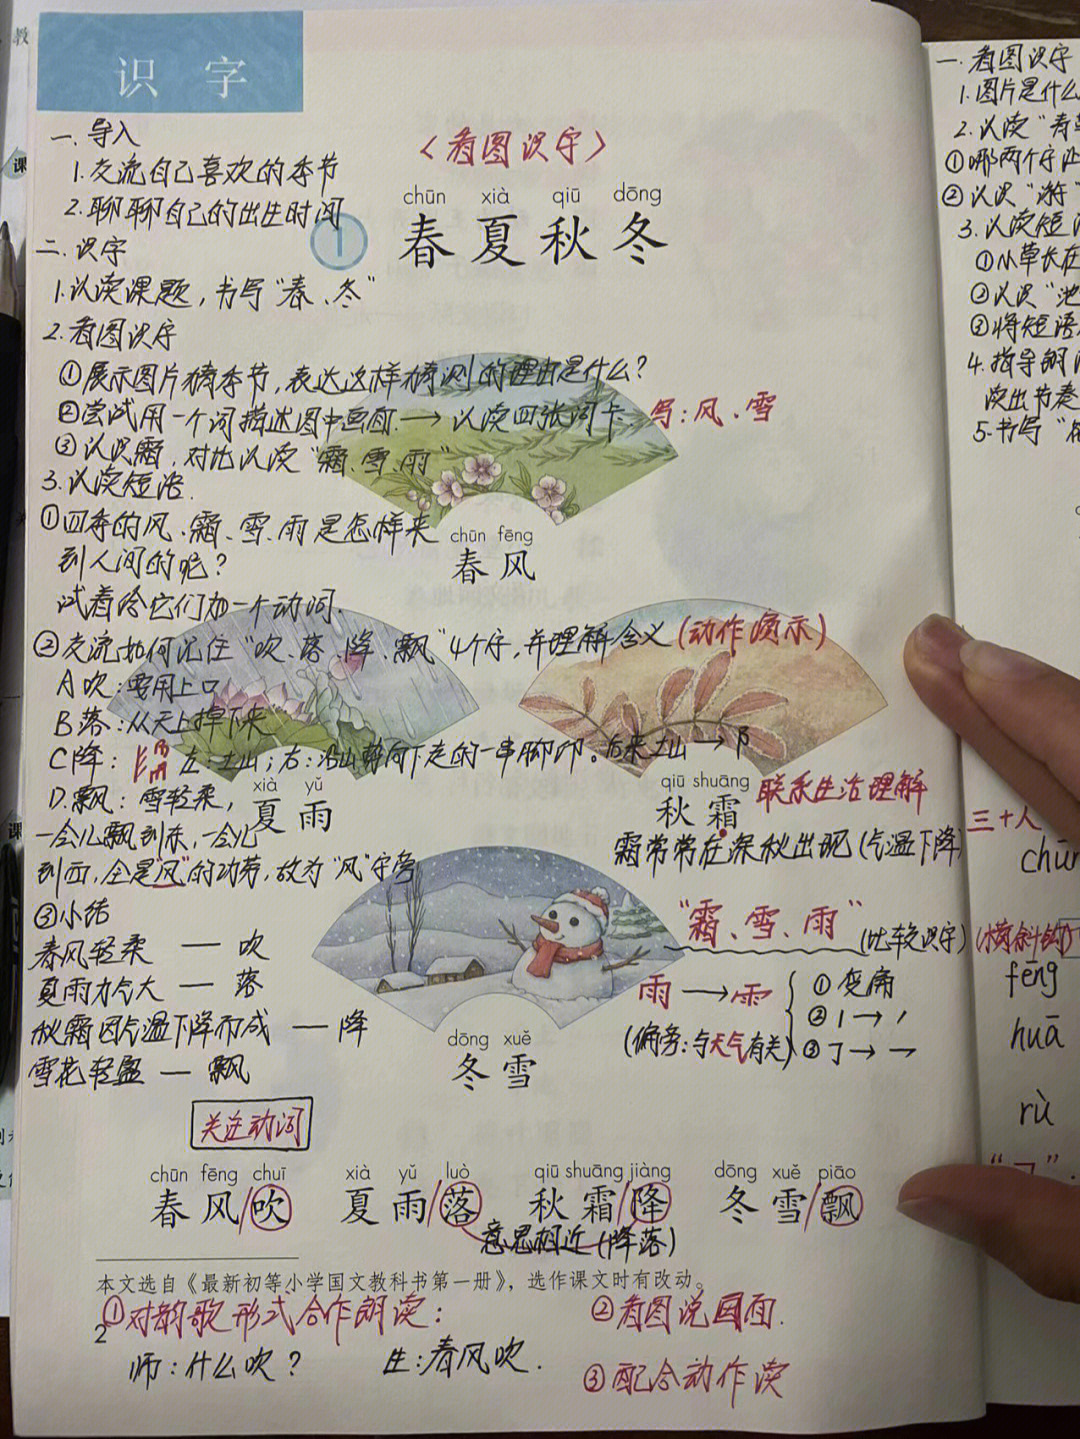 教
课
课
识 字
一. 导入
1. 交流自己喜欢的季节
2. 聊聊自己的出生时间
〈看图识字〉
chūn xià qiū dōng
1 春夏秋冬
二. 识字
1. 认读课题, 书写“春、冬”
2. 看图识字
①展示图片猜季节, 表达这样猜测的理由是什么?
②尝试用一个词描述图中画面. → 认读四张词卡. 写: 风、雪
③认识霜, 对比认读“霜、雪、雨”
3. 认读短语.
①四季的风、霜、雪、雨是怎样来
到人间的呢?
试着给它们加一个动词.
chūn fēng
春风
②交流如何记住“吹、落、降、飘”4个字, 并理解含义(动作演示)
A 吹: 要用上口
B 落: 从天上掉下来
C 降: 左: 土山; 右: 沿山ㅤ向下走的一串脚印。后来土山 → 阝
D. 飘: 雪轻柔,
一会儿飘到东, 一会儿
到西, 全是“风”的功劳, 故为“风”字旁
xià yǔ
夏雨
qiū shuāng
秋霜 联系生活理解
霜常常在深秋出现(气温下降)
“霜、雪、雨” (比较识字)
雨 → ⻗ ①变扁
②丨→丶
③㇆→乛
(偏旁: 与天气有关)
③小结
春风轻柔 — 吹
夏雨力气大 — 落
秋霜因气温下降而成 — 降
雪花轻盈 — 飘
dōng xuě
冬雪
关注动词
chūn fēng chuī xià yǔ luò qiū shuāng jiàng dōng xuě piāo
春风/吹 夏雨/落 秋霜/降 冬雪/飘
意思相近(降落)
本文选自《最新初等小学国文教科书第一册》，选作课文时有改动。
2
①对韵歌形式合作朗读:
师: 什么吹? 生: 春风吹.
②看图说画面.
③配合动作读
一. 看图识字
1. 图片是什么
2. 认读“青草
①哪两个字
②认识“游”
3. 认读短语
①小草长在
②认识“池
③将短语
4. 指导朗
读出节奏
5. 书写“
三十人
chūn
(横斜钩)
fēng
huā
rù